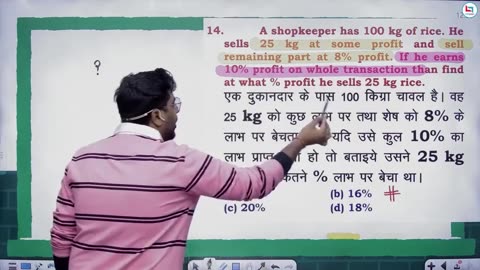 14. A shopkeeper has 100 kg of rice. He
sells 25 kg at some profit and sell
remaining part at 8% profit. If he earns
10% profit on whole transaction than find
at what % profit he sells 25 kg rice.
एक दुकानदार के पास 100 किग्रा चावल है। वह
25 kg को कुछ लाभ पर तथा शेष को 8% के
लाभ पर बेचता यदि उसे कुल 10% का
लाभ प्राप्त हो तो बताइये उसने 25 kg
कितने % लाभ पर बेचा था।
(b) 16%
(c) 20% (d) 18%
?